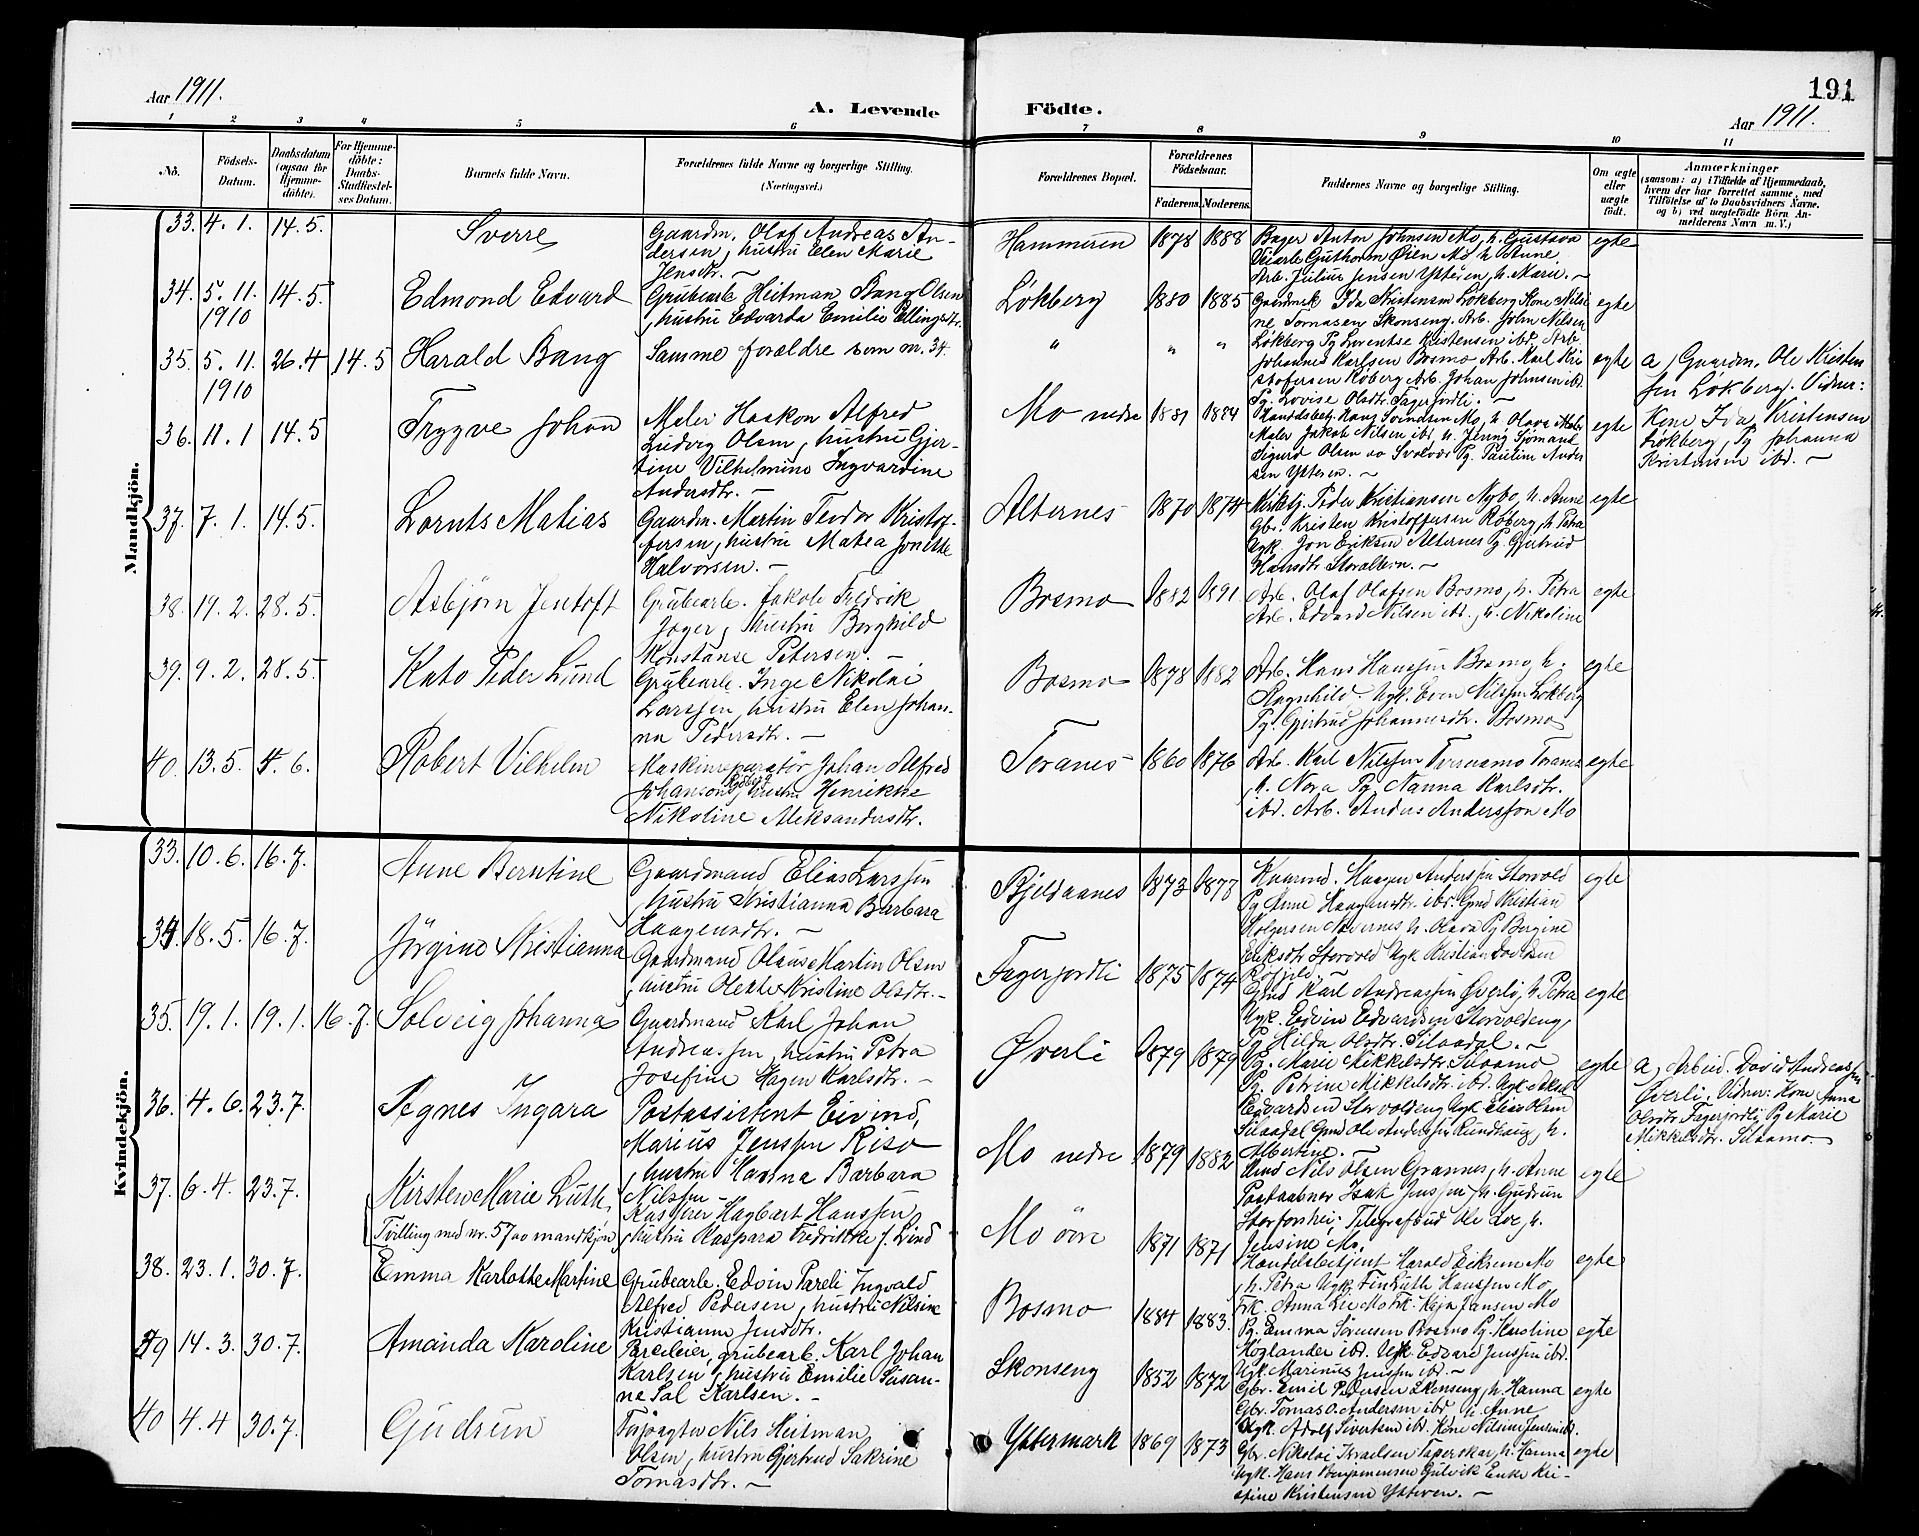 Aar 1911.
A. Levende
Födte.
191
Aar 1911.
1 2 3 4 5 6 7 8 9 10 11
No.
Födsels-Datum.
Daabsdatum (ogsaa for Hjemme-döbte).
For Hjemme-döbte: Daabs-Stadfæstel-ses Datum.
Barnets fulde Navn.
Forældrenes fulde Navne og borgerlige Stilling. (Næringsvei.)
Forældrenes Bopæl.
Forældrenes Födselsaar.
Faderens. Moderens.
Faddernes Navne og borgerlige Stilling.
Om ægte eller uægte födt.
Anmærkninger
(saasom: a) i Tilfælde af Hjemmedaab, hvem der har forrettet samme, med Tilföielse af to Daabsvidners Navne. og b) ved uægtefödte Börn Anmelderens Navn m. V.)
Mandkjön.
33. 4. 1. 14. 5. Sverre
Gaardm. Olaf Andreas An-
dersen, hustru Elen Marie
Jensdtr. —
Hammeren 1878 1888
Bager Anton Johnsen Mo, h. Gustava
Veiarb Guthorm Øien Mo h Anne
Arb. Julius Jensen Ytteren, h. Marie. —
egte
34. 5. 11. 1910 14. 5. Edmond Edvard
Grubearb Heitman Bang Olsen
, hustru Edvarda Emilie Ellingsdtr.
Løkberg 1880 1885
Gaardmk Ida Kristensen Løkberg Kone Nilsi
ne Tomasen Skonseng. Arb. John Nilsen
Løkberg Pg Lorentse Kristensen ibd. Arb
egte
35. 5. 11. 1910 26. 4 14. 5 Harald Bang
Samme forældre som nr. 34.
" " "
Johannes Karlsen Bosmo Arb. Karl Kri
stofersen Røberg Arb. Johan Johnsen ibd.
Pg. Lovise Olsdtr. Fagerjordli. —
egte
a, Gaardm. Ole Kristen
sen Løkberg. Vidner:
Kone Ida Kristensen
Løkberg, Pg Johanna
Kristensen ibd. —
36. 11. 1 14. 5 Trygve Johan
Maler Haakon Alfred
Ludvig Olsen, hustru Gjer-
tine Vilhelmine Ingvardine
Andersdtr. —
Mo nedre 1881 1884
Handelsbetj. Hans Svendsen Mo, h Olava
Maler Jakob Nilsen ibd, h. Jenny Sjömand
Sigurd Olsen av Svolvær Pg. Pauline Ander
sen Ytteren. —
egte
37. 7. 1. 14. 5. Lornts Matias
Gaardm. Martin Teodor Kristof-
fersen, hustru Matea Jonette
Halvorsen. —
Alternes 1870 1874
Kirketj. Peder Kristiansen Nybo, h. Anne
Gbr. Kristen Kristoffersen Røberg, h Petra
Ugk. Jon Eriksen Alternes Pg. Gjertrud
Hansdtr Storaltern. —
egte
38. 19. 2. 28. 5. Asbjørn Jentoft
Grubearb. Jakob Fredrik
Jager, hustru Borghild
Konstanse Petersen. —
Bosmo 1882 1891
Arb. Olaf Olafsen Bosmo, h. Petra
Arb. Edvard Nilsen ibd., h. Nikoline
egte
39. 9. 2. 28. 5. Kato Peder Lund
Grubearb. Inge Nikolai
Larssen, hustru Elen Johan-
na Pedersdtr. —
Bosmo 1878 1882
Arb. Hans Hanssen Bosmo, h.
Ragnhild. Ugk. Even Nilssen Løkberg
Pg. Gjertrud Johannesdtr. Bosmo
egte
40. 13. 5. 4. 6. Robert Vilhelm
Maskinreparatør Johan Alfred
Johanson, hustru Henrikke
Nikoline Aleksandersdtr.
Toranes 1860 1876
Arb. Karl Nilssen Toranes
, h. Nora Pg. Nanna Karlsdtr.
ibd. Arb. Anders Anderssen Mo
egte
Kvindekjön.
33. 10. 6. 16. 7. Anne Berntine
Gaardmand Elias Larssen
, hustru Kristianna Barbara
Haagensdtr. —
Bjeldaanes 1873 1877
Kaarmd. Haagen Anderssen Storvold
Pg Anne Haagensdtr. ibd. Gmd Kristian
Holgersen Alternes h. Olava Pg Bergine
Eriksdtr Storvold Ugk Kristian
egte
34. 18. 5. 16. 7. Jørgine Kristianna
Gaardmand Olaus Martin Olsen
, hustru Olekke Kristine Olsdtr. —
Fagerjordli 1875 1874
Gmd Karl Andreassen Øverli, h. Petra
Ugk. Edvin Edvardsen Storvoldeng,
Pg Hilda Olsdtr. Silaadal. —
egte
35. 19. 1. 19. 1. 16. 7. Solveig Johanna
Gaardmand Karl Johan
Andreassen, hustru Petra
Josefine Hagen Karlsdtr. —
Øverli 1879 1879
Pg. Marie Mikkelsdtr Silaamo
Pg. Petrine Mikkelsdtr. ibd. Ugk Aksel
Edvardsen Storvoldeng Ugk Elias Olsen
Silaadal Gmd Ole Anderssen Rundhaug, h.
Albertine. —
egte
a, Arbeid. David Andreassen
Øverli, Vidner: Kone Anna
Olsdtr Fagerjordli Pg Marie
Mikkelsdtr. Silaamo.
36. 4. 6. 23. 7. Agnes Ingara
Postassistent Eivind,
Marius Jenssen Risø
, hustru Hanna Barbara
Nilssen —
Mo nedre 1879 1882
Gmd Nils Olsen Grannes, h. Anne
Postaabner Isak Jenssen, h. Gudrun
Storforshei, Telegrafbud Ole Lae, h.
Jensine Mo.
egte
37. 6. 4. 23. 7. Kirsten Marie Luth
Tvilling med nr. 57 av mandkjön
Kasserer Hagbart Hanssen,
hustru Kaspara Fredrikke f. Lind
Mo övre 1871 1871
Handelsbetjent Harald Eikrem Mo
, h. Petra Ugk. Finluth Hanssen Mo
Frk. Anna Lie Mo Frk. Kaja Jansen Mo
egte
38. 23. 1. 30. 7. Emma Karlotte Martine
Grubearb. Edvin Pareli Ingvald
Alfred Pedersen, hustru Nilsine
Kristianne Jensdtr.
Bosmo 1884 1883.
Pg. Emma Sørensen Bosmo Pg. Karoline
Høglander ibd. Ugk. Edvard Jenssen ibd.
Ugk. Marinus Jenssen ibd. —
egte
39 14. 3. 30. 7. Amanda Karoline
Parceleier, grubearb. Karl Johan
Karlsen, hustru Emilie Susan-
ne Sal Karlsen. —
Skonseng 1852 1872
Gbr. Emil Pedersen Skonseng, h. Hanna
Gbr. Tomas O. Andersen ibd h. Anne
Ugk. Adolf Sivertsen ibd. Kone Nilsine Jensen ibd.
egte
40 4. 4 30. 7. Gudrun
Nils Heitman
Olsen, hustru Gjertrud Sakrine
Tomasdtr. —
Yttermark 1869 1873
Gbr. Nikolai Israelsen Fagerskar, h. Hanna
Ugk. Hans Benjaminsen Gulvik Enke Kri-
stine Kristensen Ytteren. —
egte